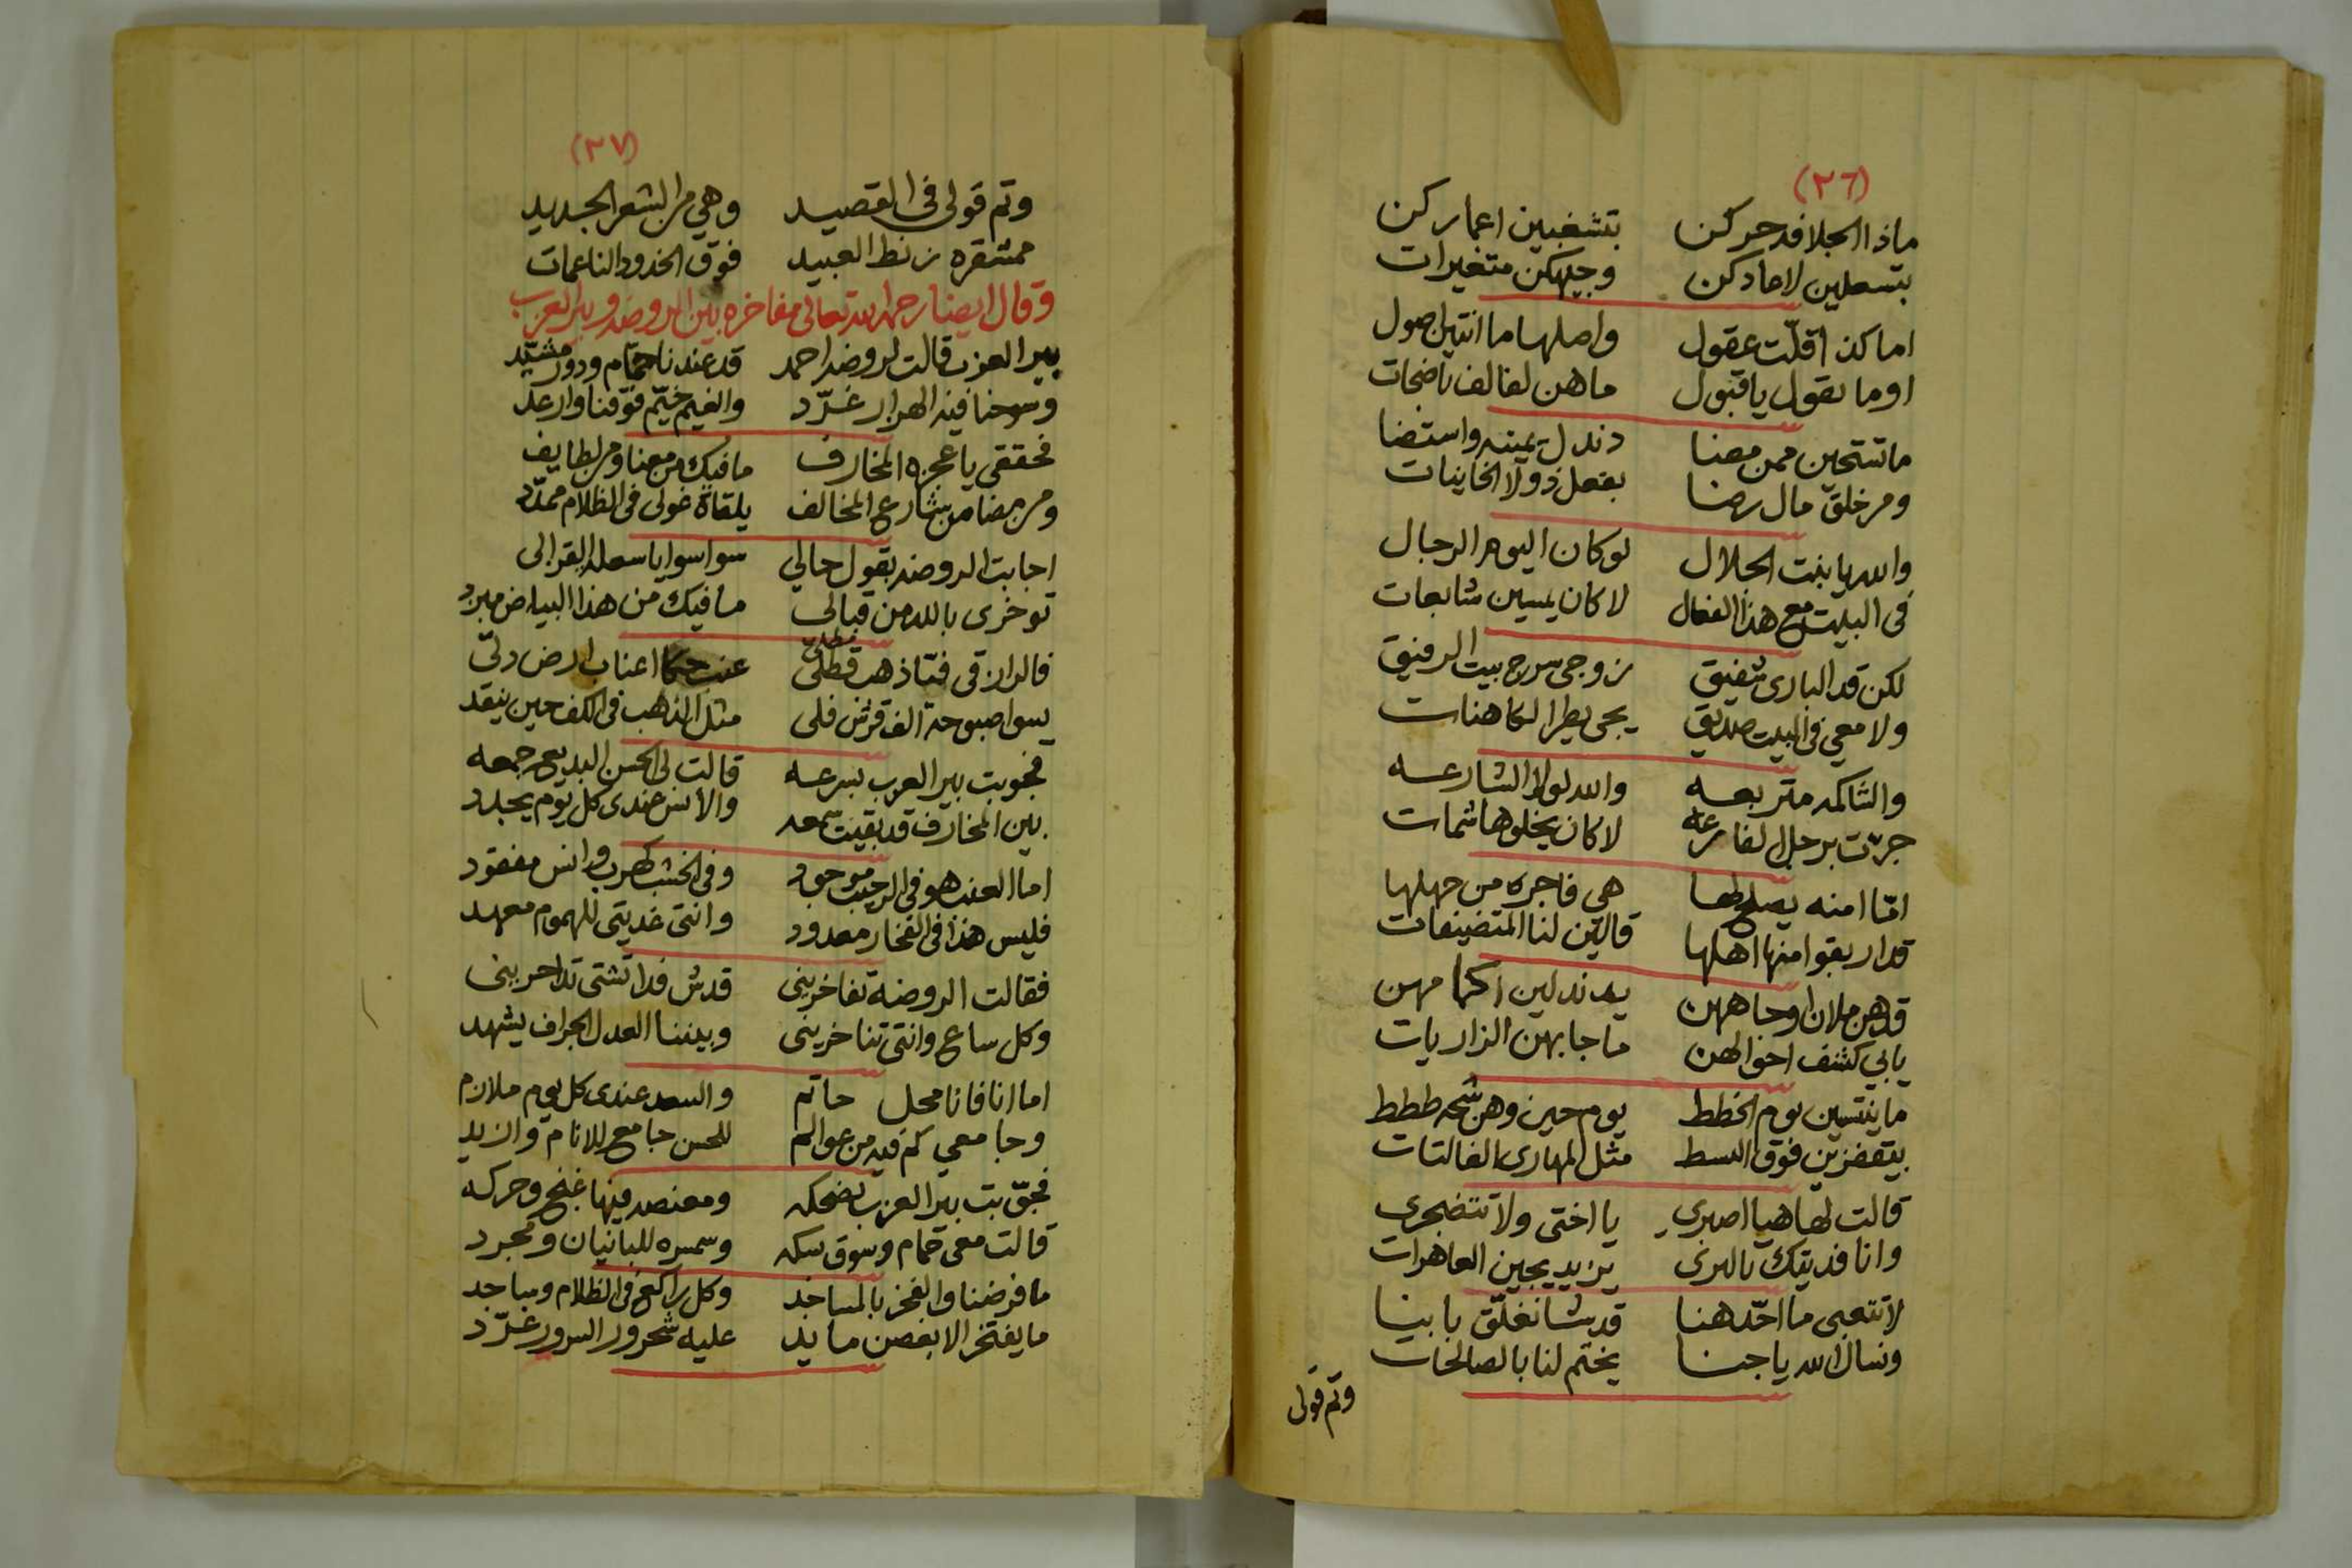 (٢٦)
ماذا الجلا قد حركن بتشغبين اعماركن
بتسعلين لا مادكن وجيهكن متغيرات
اما كذ اقلّت عقول واصلها ما انتين اصول
او ما نقول يا قبول ما هن لفالف ناضجات
ما تستحين ممن مضا دندل يمينه واستضا
ومن خلق مال رضا بفعل ذولا الخاينات
والله يا بنت الحلال لو كان اليوم الرجال
في البيت مع هذا الفعال لا كان يمسين شابعات
لكن قد الباري شفيق زوجي سرح بيت الرفيق
ولا معي في البيت صديق يجي يطرا الكاهنات
والشاكمه متربعه والله لولا الشارعه
جرّت برجل الفارعه لا كان يخلوها شمات
امّا امنه يصلح لها هي فاجره من جهلها
قدار بقوا منها اهلها قالين لنا المتضيفات
قد هن ملان اوحاههن يدندلين اكمامهن
يا بي كشف احوالهن ما جا بهن الزاريات
ما ينتسين يوم الخطط يوم حين وهن شحه ططط
بيتقفزين فوق البسط مثل المهاري الفالتات
قالت لها هيا اصبري يا اختي ولا تتضجري
وانا فديتك بالبري يزيد يجين العاهرات
لا تتعبي ما احّد هنا قد شا نغلّق بابينا
ونسال الله يا جنا يختم لنا بالصالحات
وتم قولي
(٢٧)
وتم قولي في القصيد وهي من الشعر الجديد
ممتقره زنط العبيد فوق الخدود الناعمات
وقال ايضا رحمه الله تعالى مفاخره بين الروضه وبير العزب
بير العزب قالت لروضة احمد قد عندنا حمّام ودور مشيّد
وسوحنا فيه الهزار غرّد والغيم خيّم فوقنا وارعد
فحققي يا عجزه المخارف ما فيك من معنا ومن لطايف
ومن مضا من شارع المخالف يلقاه غولي في الظلام ممدّد
اجابت الروضه بقول حالي سوا سوا يا سعلة البقرالي
توخري بالله من قبالي ما فيك من هذا البياض مبرد
قال ان قي فتّا ذهب قطلّي مطلي عنب حكا اعناب ارض دلّي
يسوا صبوحة الف قرش فلي مثل الذهب في الكف حين ينقد
فجوبت بير العزب بسرعه قالت لي الحسن البديع جمعه
بين المخارف قد بقيت سمعه والانس عندي كل يوم يجدد
اما العنب هو في الرحبت موجود وفي الخشب كهرب وانس مفقود
فليس هذا في الفخار معدود وانتي غديتي للهموم معهد
فقالت الروضه تفاخريني قدش فدا تشتي تداحريني
وكل ساع وانتي تناخريني وبيننا العدل الجراف يشهد
اما انا فانا محل حاتم والسعد عندي كل يوم ملازم
وجامعي كم فيه من عوالم للحسن جامع للانام وازيد
فجوّبت بير العزب بضحكه ومعنصه فيها غنج وحركه
قالت معي حمام وسوق سكه وسمسره للبانيان ومجرد
ما فرضنا والفخر بالمساجد وكل راكع في الظلام وساجد
ما يفتخر الا بغصن مايد عليه شحرور السرور غرّد